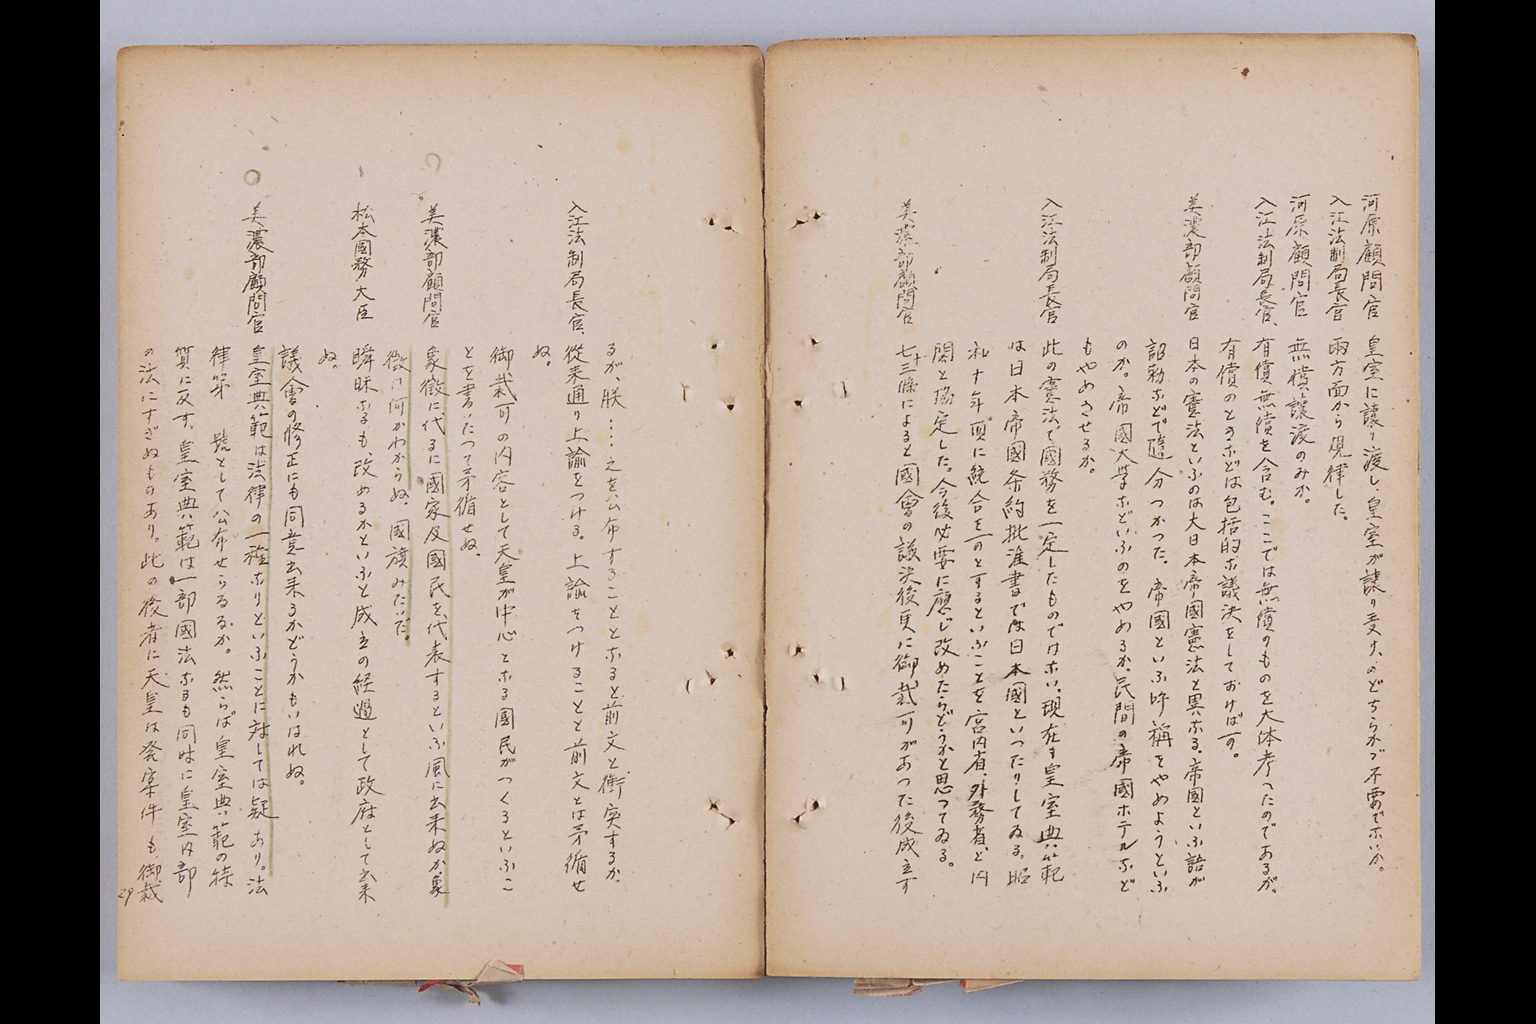 河原顧問官　皇室に譲り渡し、皇室が譲り受け、のどちらかゞ不要でないか。
入江法制局長官　両方面から規律した。
河原顧問官　無償譲渡のみか。
入江法制局長官、有償無償を含む。ここでは無償のものを大体考へたのであるが、
有償のときなどは包括的な議決をしておけばよい。
美濃部顧問官　日本の憲法といふのは大日本帝國憲法と異なる。帝國といふ語が
詔勅などで随分つかつた。帝國といふ呼称をやめようといふ
のか。帝國大学などいふのをやめるか、民間の帝國ホテルなど
もやめさせるか。
入江法制局長官　此の憲法で國務を一定したものではない、現在も皇室典範
は日本帝國条約批准書では日本國といつたりしてゐる。昭
和十年頃に統合を一のとするといふことを宮内省、外務省と内
閣と協定した。今後必要に應じ改めたらどうかと思つてゐる。
美濃部顧問官　七十三條によると國會の議決後更に御裁可があつた後成立す
るが、朕……之を公布することとなると前文と衝突するか。
入江法制局長官、從来通り上諭をつける。上諭をつけることと前文とは矛循せ
ぬ。
御裁可の内容として天皇が中心となる國民がつくるといふこ
とを書いたつて矛循せぬ、
美濃部顧問官　象徴に代るに國家及國民を代表するといふ風に出来ぬか、象
徴は何かわからぬ、國旗みたいだ。
松本國務大臣　瞬昧なるも、改めるかといふと成立の経過として政府として出来
ぬ。
議會の修正にも同意出来るかどうかもいはれぬ。
美濃部顧問官　皇室典範は法律の一種なりといふことに対しては疑あり。法
律第　號として公布せらるるか。然らば皇室典範の特
質に反す、皇室典範は一部國法なるも同時に皇室内部
の法にすぎぬものあり。此の後者に天皇は発案件も、御裁
29